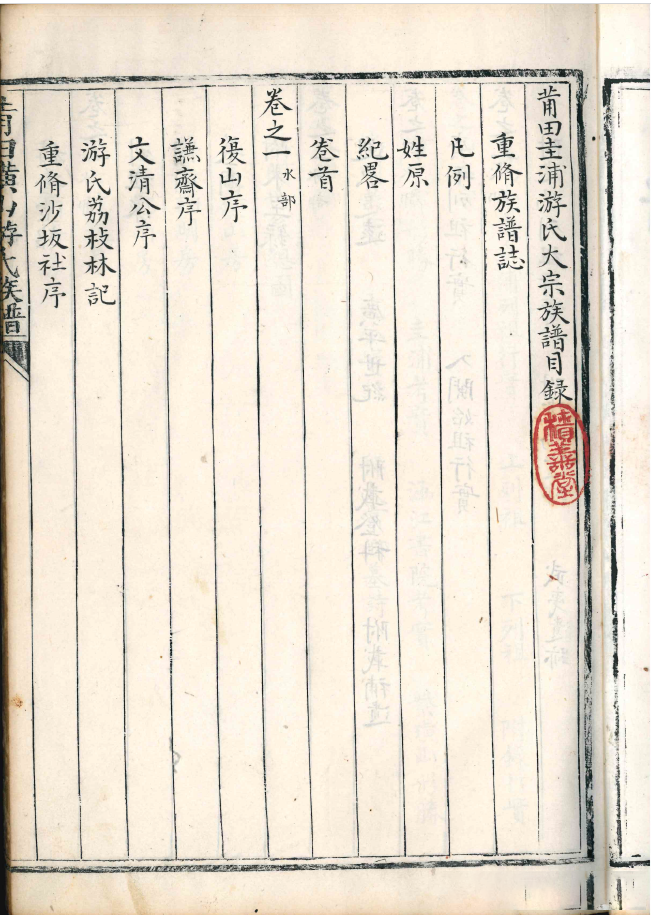 莆田圭浦游氏大宗族譜目録
積善堂
重脩族譜誌
凡例
姓原
紀畧
卷首
卷之一 水部
復山序
謙齋序
文清公序
游氏荔枝林記
重脩沙坂社序
莆田橫山游氏族譜